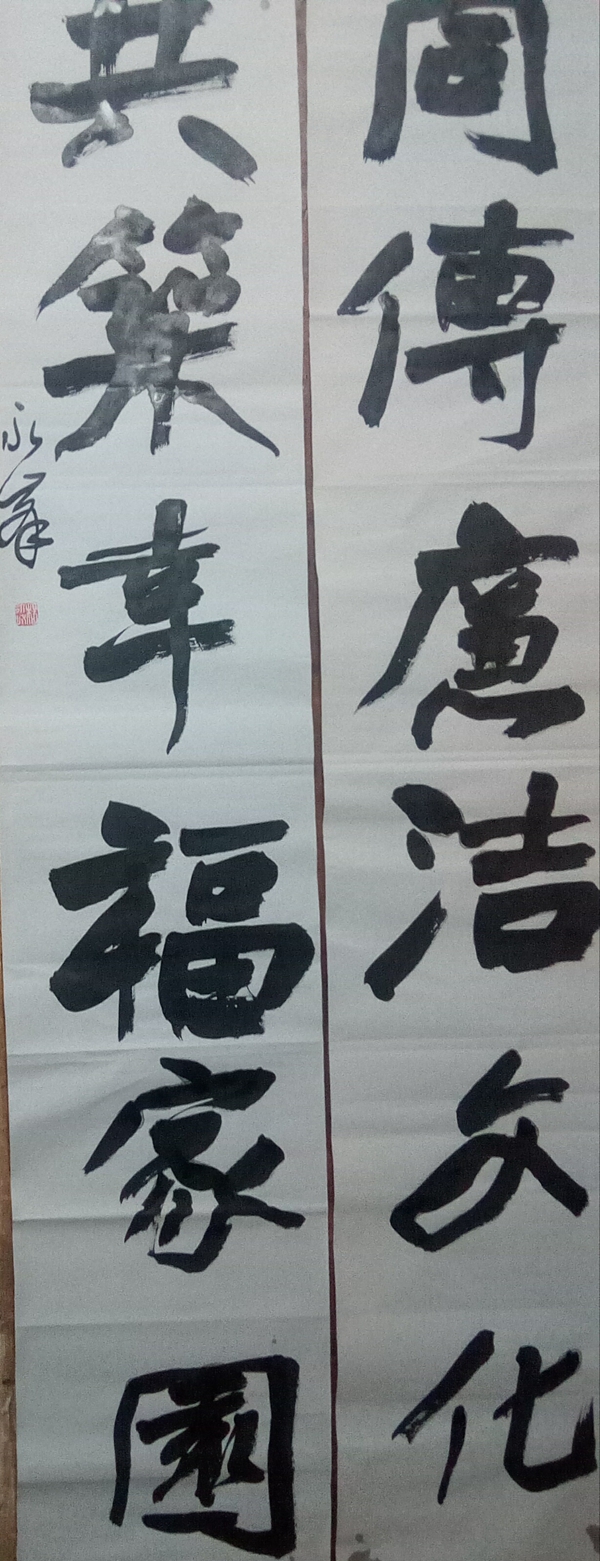 同傳廉洁文化
共築幸福家園
永祥